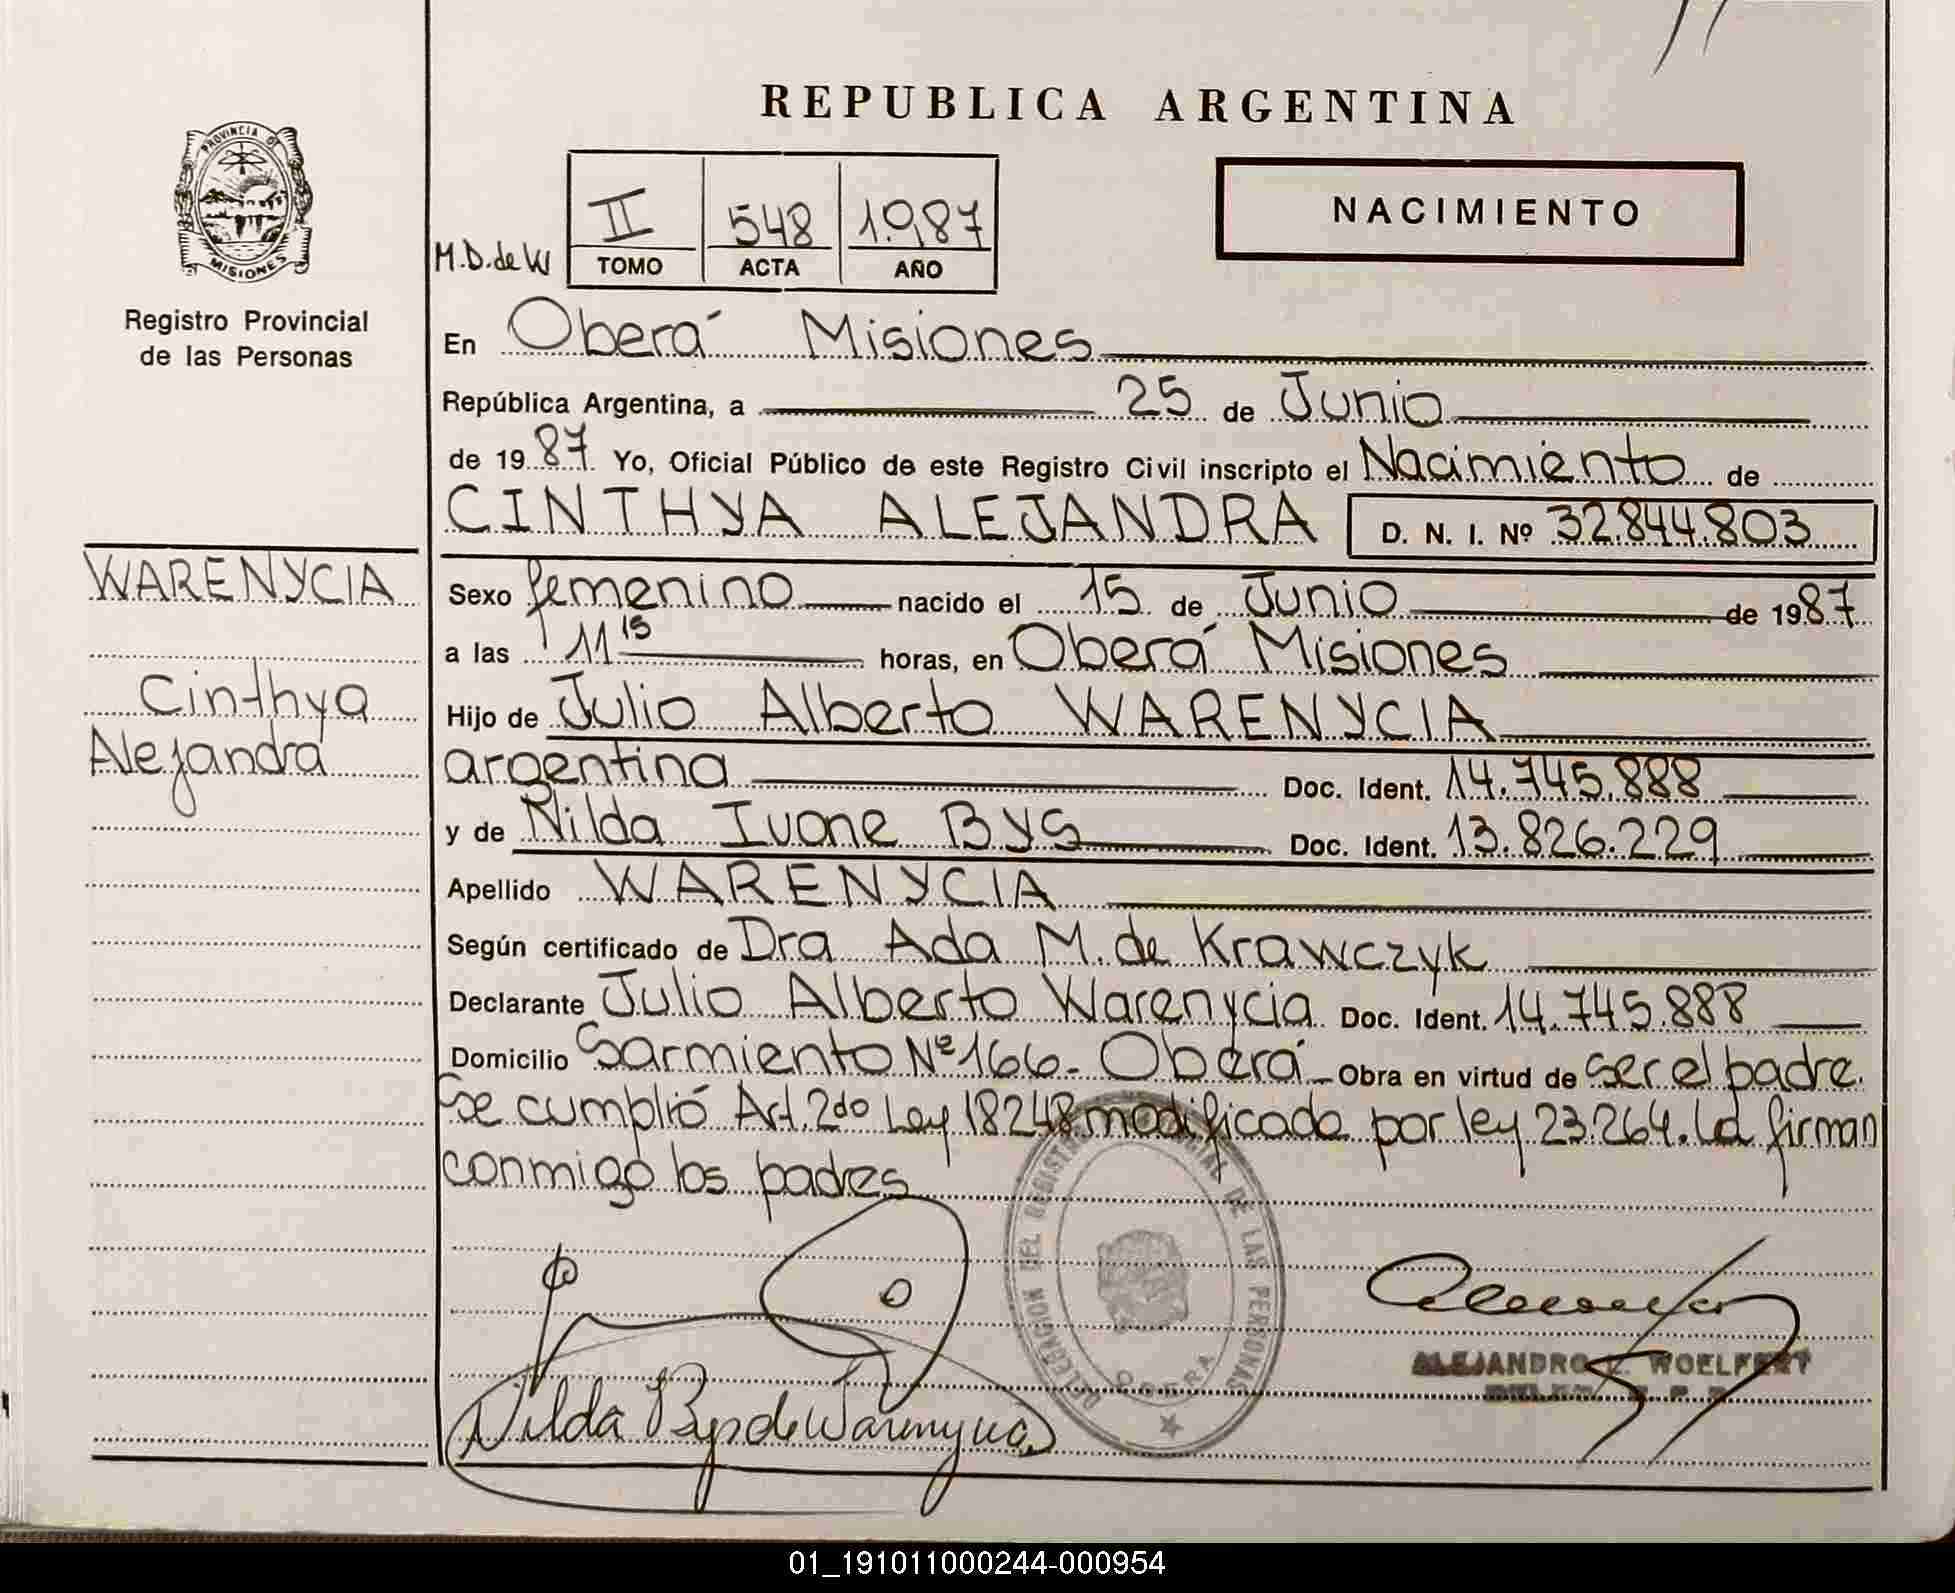 REPUBLICA ARGENTINA
PROVINCIA DE
MISIONES
Registro Provincial
de las Personas
M.D. de W
II 548 1.987
TOMO ACTA AÑO
NACIMIENTO
En Oberá Misiones
República Argentina, a 25 de Junio
de 19 87 Yo, Oficial Público de este Registro Civil inscripto el Nacimiento de
CINTHYA ALEJANDRA D. N. I. Nº 32.844.803
WARENYCIA
Cinthya
Alejandra
Sexo femenino nacido el 15 de Junio de 1987
a las 11 15 horas, en Oberá Misiones
Hijo de Julio Alberto WARENYCIA
argentina Doc. Ident. 14.745.888
y de Nilda Ivone Bys Doc. Ident. 13.826.229
Apellido WARENYCIA
Según certificado de Dra Ada M. de Krawczyk
Declarante Julio Alberto Warenycia Doc. Ident. 14.745.888
Domicilio Sarmiento Nº 166- Oberá Obra en virtud de ser el padre.
Se cumplió Art. 2do Ley 18248 modificada por ley 23.264. La firman
conmigo los padres
DELEGACION DEL REGISTRO PROVINCIAL DE LAS PERSONAS
OBERA
Nilda Bys de Warenycia
ALEJANDRO WOELFERT
01_191011000244-000954